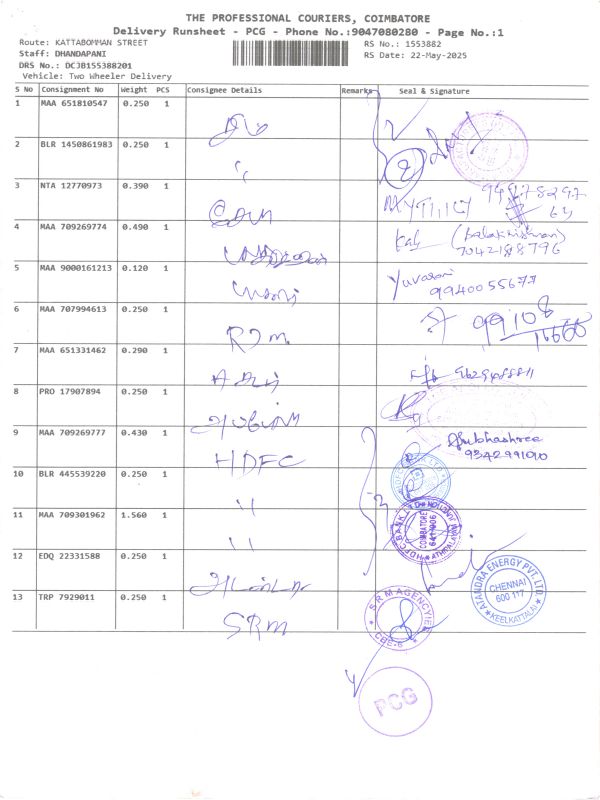 THE PROFESSIONAL COURIERS, COIMBATORE
Delivery Runsheet - PCG - Phone No.:9047080280 - Page No.:1
Route: KATTABOMMAN STREET
RS No.: 1553882
Staff: DHANDAPANI
RS Date: 22-May-2025
DRS No.: DCJB155388201
Vehicle: Two Wheeler Delivery
S No Consignment No Weight PCS Consignee Details Remarks Seal & Signature
1 MAA 651810547 0.250 1
2 BLR 1450861983 0.250 1 "
3 NTA 12770973 0.390 1
4 MAA 709269774 0.490 1 (Balakrishnan)
7042188796
5 MAA 9000161213 0.120 1 Yuvarani
9940055677
6 MAA 707994613 0.250 1 RJM 99108
16660
7 MAA 651331462 0.290 1
8 PRO 17907894 0.250 1
9 MAA 709269777 0.430 1 HDFC Shubhashree
9342991090
10 BLR 445539220 0.250 1 "
11 MAA 709301962 1.560 1 "
HDFC BANK LTD
COIMBATORE
12 EDQ 22331588 0.250 1
AVANDRA ENERGY PVT. LTD.
CHENNAI
600 117
KEELKATTALAI
13 TRP 7929011 0.250 1 SRM
S R M AGENCYIES
CBE-6
PCG